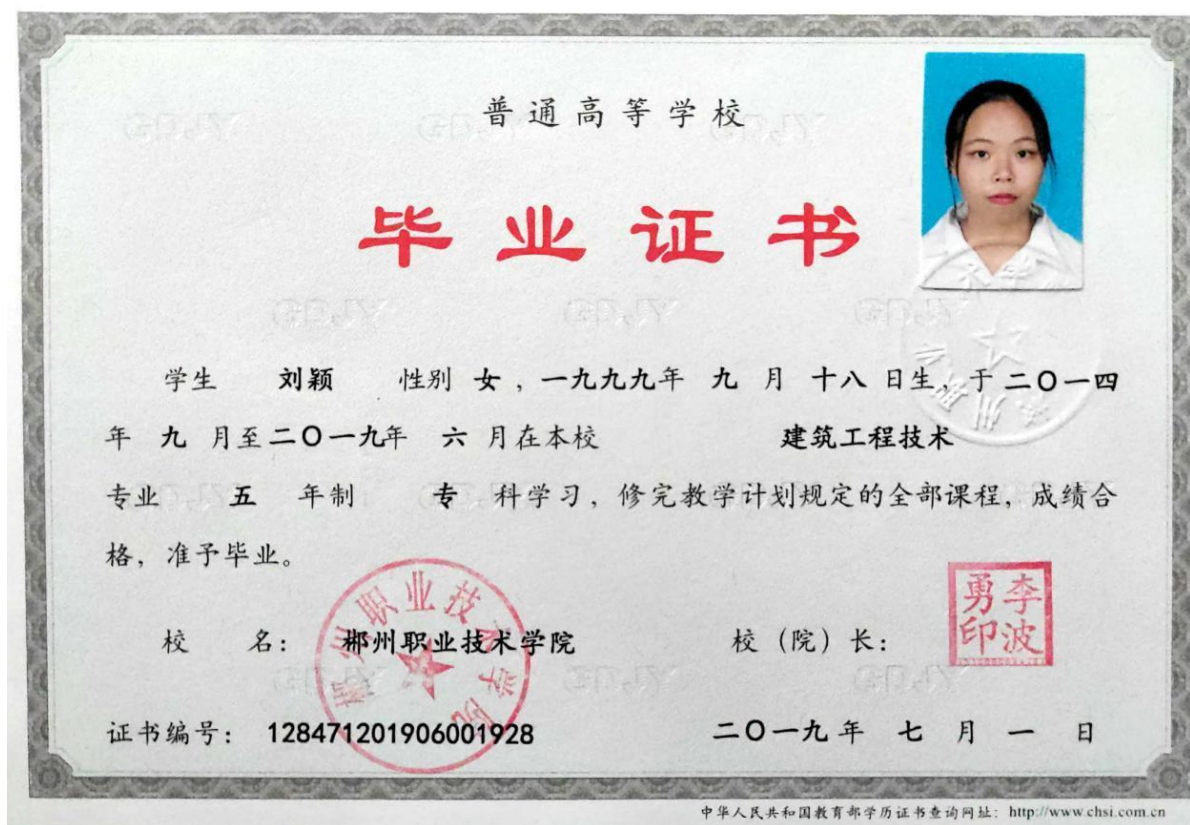 普通高等学校
毕业证书
学生 刘颖 性别 女，一九九九年 九 月 十八 日生，于二〇一四
年 九 月至二〇一九年 六 月在本校 建筑工程技术
专业 五 年制 专 科学习，修完教学计划规定的全部课程，成绩合
格，准予毕业。
校 名： 郴州职业技术学院 校（院）长：
李波勇印
郴州职业技术学院
证书编号： 128471201906001928 二〇一九年 七 月 一 日
中华人民共和国教育部学历证书查询网址：http://www.chsi.com.cn